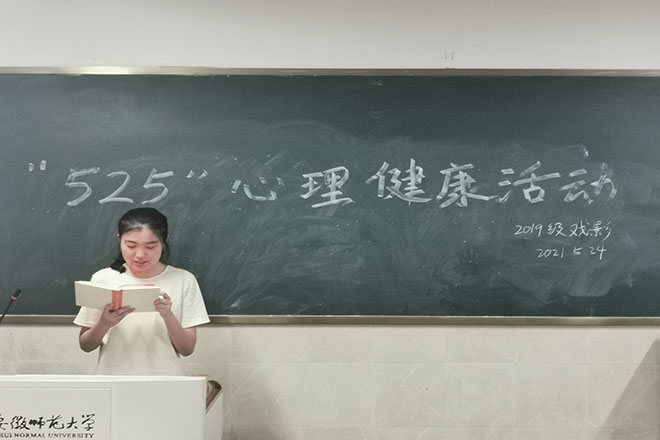 "525"心理健康活动
2019级戏影
2021.5.24
安徽师范大学
HUI NORMAL UNIVERSITY